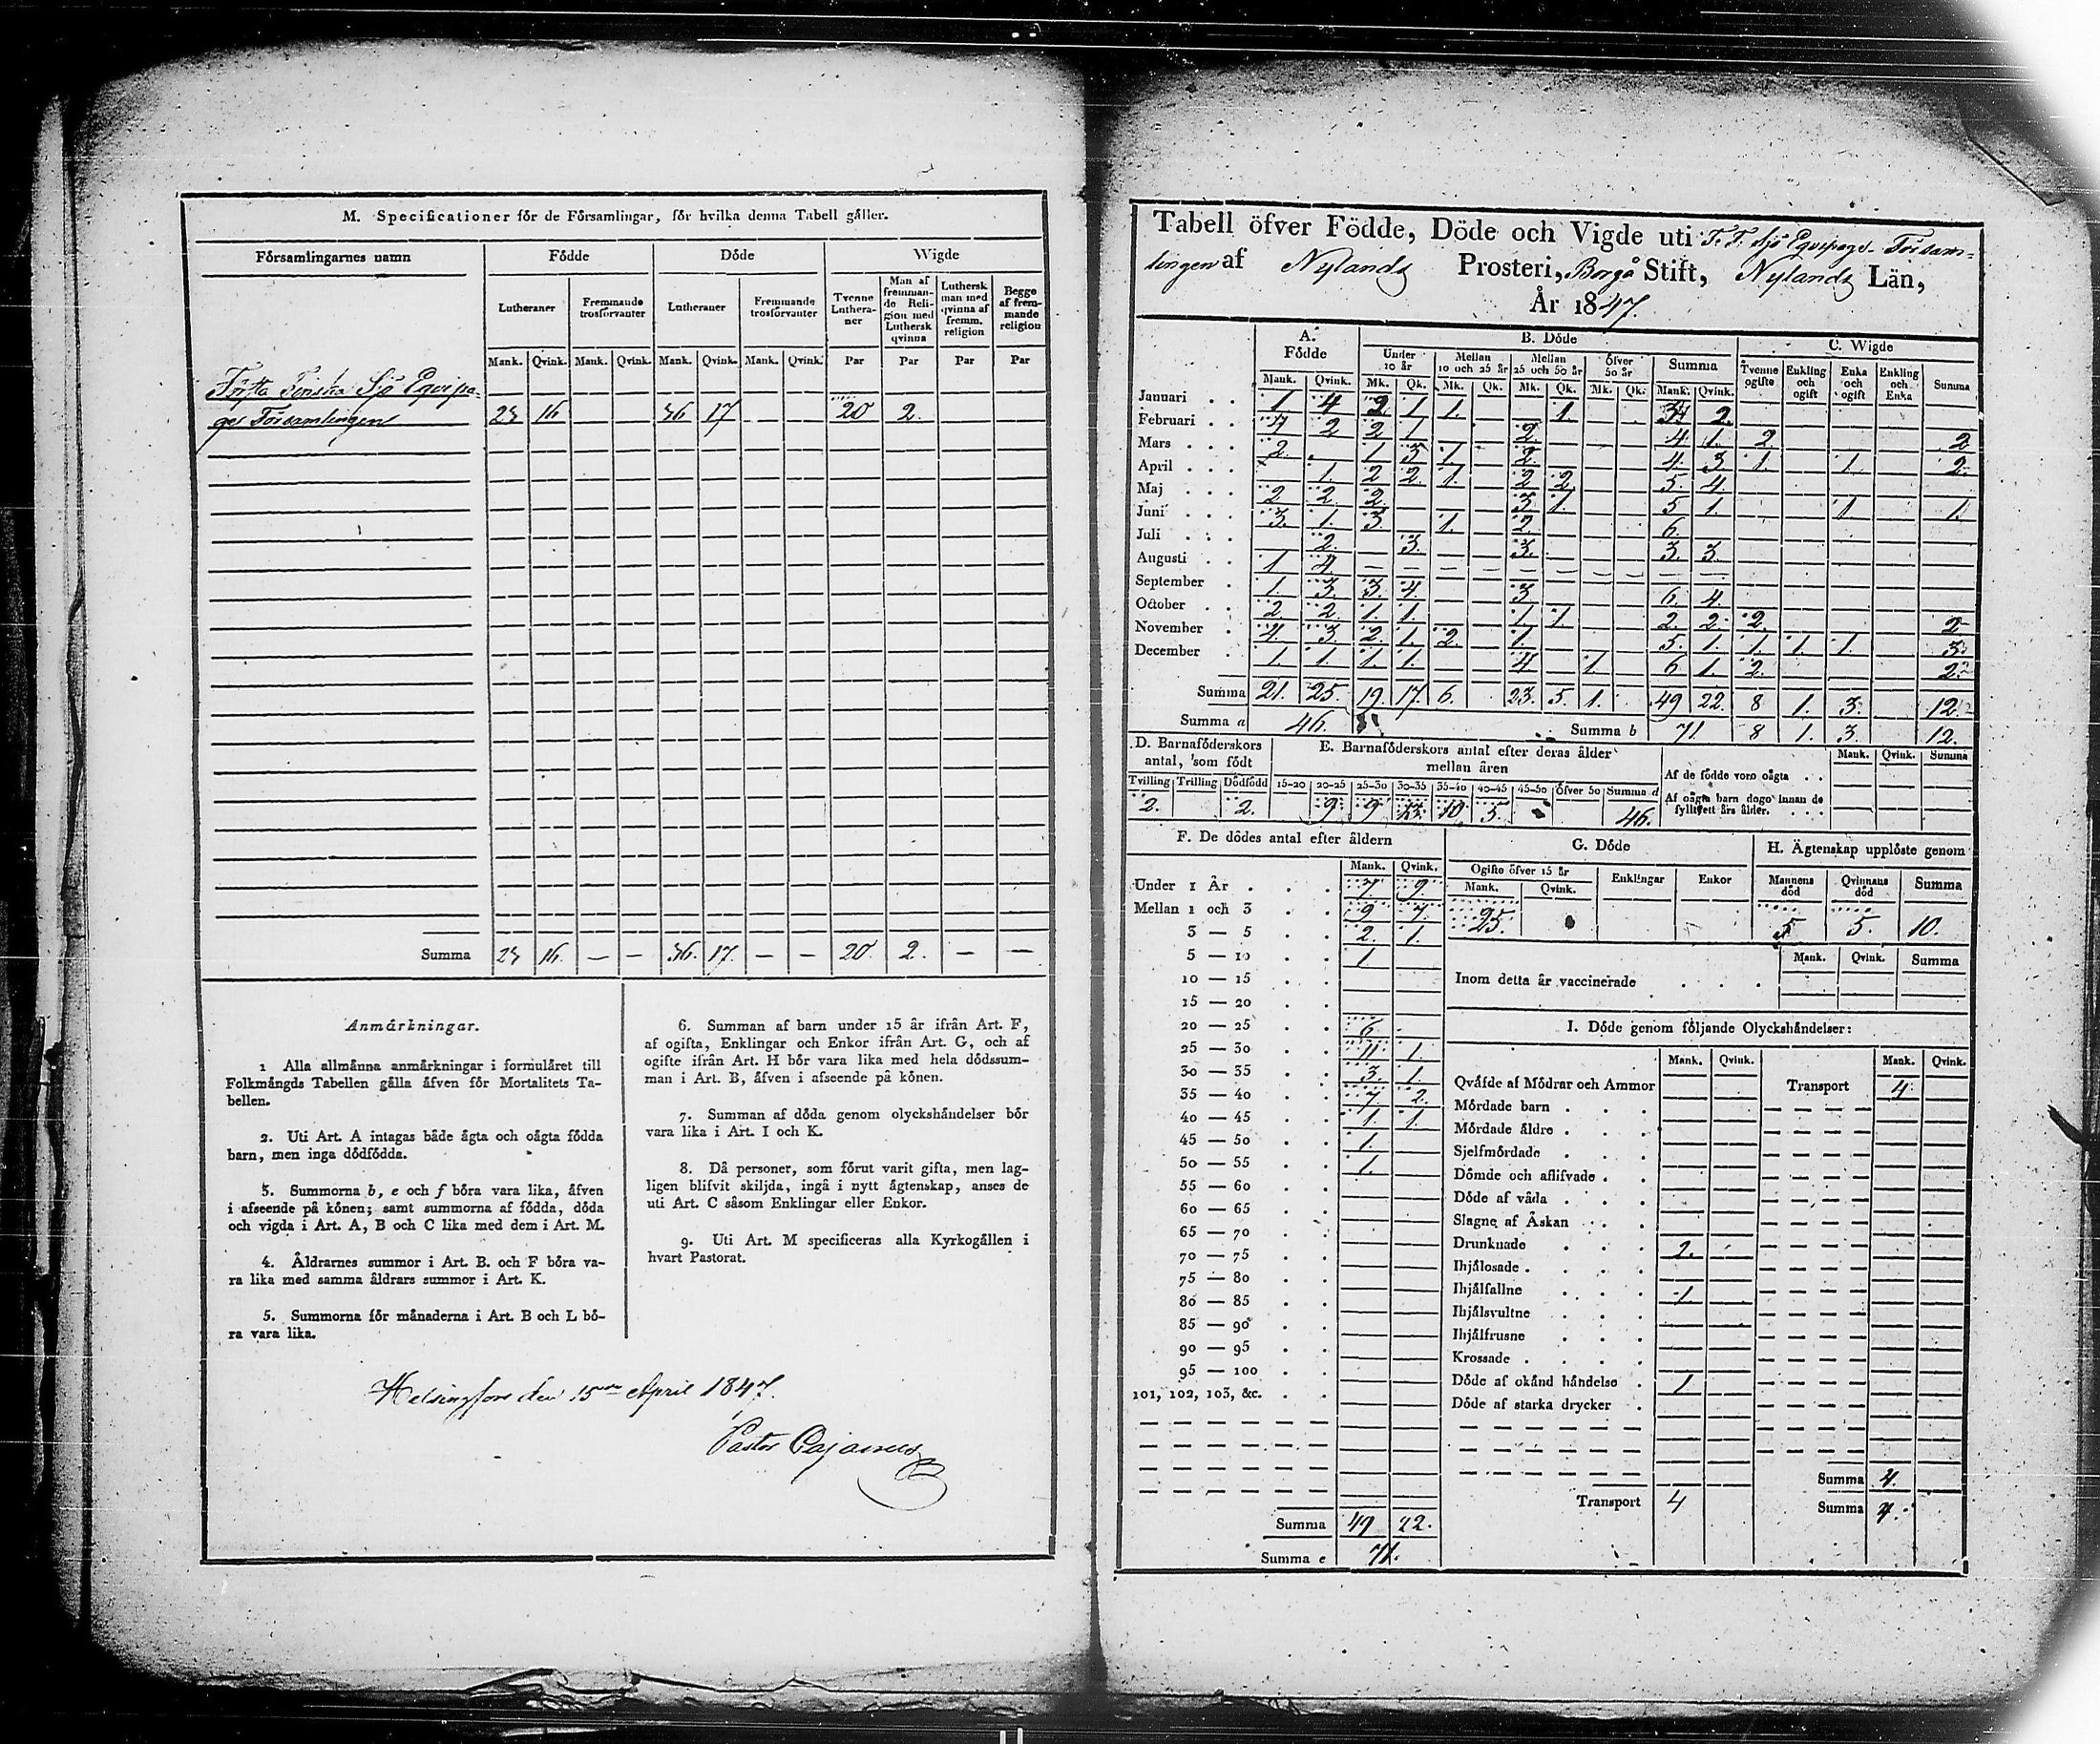 M. Specificationer för de Församlingar, för hvilka denna Tabell gäller.
Församlingarnes namn Födde Döde Wigde
Lutheraner Fremmande trosförvanter Lutheraner Fremmande trosförvanter Tvenne Lutheraner Man af fremmande Religion med Luthersk qvinna Luthersk man med qvinna af fremm. religion Begge af fremmande religion
Mank. Qvink. Mank. Qvink. Mank. Qvink. Mank. Qvink. Par Par Par Par
Första Finska Sjö Equipa-
ges Församlingen 23 16 36 17 20 2.
Summa 23 16. — — 36. 17. — — 20. 2. — —
Anmärkningar.
1 Alla allmänna anmärkningar i formuläret till
Folkmängds Tabellen gälla äfven för Mortalitets Ta-
bellen.
2. Uti Art. A intagas både ägta och oägta födda
barn, men inga dödfödda.
3. Summorna b, e och f böra vara lika, äfven
i afseende på könen; samt summorna af födda, döda
och vigda i Art. A, B och C lika med dem i Art. M.
4. Åldrarnes summor i Art. B. och F böra va-
ra lika med samma åldrars summor i Art. K.
5. Summorna för månaderna i Art. B och L bö-
ra vara lika.
6. Summan af barn under 15 år ifrån Art. F,
af ogifta, Enklingar och Enkor ifrån Art. G, och af
ogifte ifrån Art. H bör vara lika med hela dödssum-
man i Art. B, äfven i afseende på könen.
7. Summan af döda genom olyckshändelser bör
vara lika i Art. I och K.
8. Då personer, som förut varit gifta, men lag-
ligen blifvit skiljda, ingå i nytt ägtenskap, anses de
uti Art. C såsom Enklingar eller Enkor.
9. Uti Art. M specificeras alla Kyrkogällen i
hvart Pastorat.
Helsingfors den 15de April 1847.
Pastor Cajanus
Tabell öfver Födde, Döde och Vigde uti F. F. Sjö Equipage Försam-
lingen af Nylands Prosteri, Borgå Stift, Nylands Län,
År 1847.
A. Födde B. Döde C. Wigde
Under 10 år Mellan 10 och 25 år Mellan 25 och 50 år Öfver 50 år Summa Tvenne ogifte Enkling och ogift Enka och ogift Enkling och Enka Summa
Mank. Qvink. Mk. Qk. Mk. Qk. Mk. Qk. Mk. Qk. Mank. Qvink.
Januari 1 4 2 1 1. 1. 3 2.
Februari 4 2 2 1 2. 4 1. 2. 2
Mars 2. 1 3 1. 2. 4. 3 1. 1. 2.
April 1. 2 2. 1. 2 2. 5 4.
Maj 2 2 2. 3 1. 5 1. 1 1.
Juni 3. 1. 3. 1. 2. 6.
Juli 2. 3. 3. 3. 3.
Augusti 1 4. — — — — — — — — — —
September 1. 3. 3. 4. 3 6. 4.
October 2 2. 1. 1. 1. 1 2. 2. 2. 2
November 4. 3. 2. 1. 2. 1. 5. 1. 1. 1. 1. 3.
December 1. 1. 1. 1. 4 1. 6 1. 2. 2.
Summa 21. 25. 19. 17. 6. 23. 5. 1. 49 22. 8 1. 3. 12.
Summa a 46. Summa b 71 8 1. 3. 12.
D. Barnaföderskors antal, som födt
E. Barnaföderskors antal efter deras ålder mellan åren
Tvilling Trilling Dödfödd 15-20 20-25 25-30 30-35 35-40 40-45 45-50 Öfver 50 Summa d
2. 2. 9 9 13. 10 5. 46.
Mank. Qvink. Summa
Af de födde voro oägta
Af oägta barn dogo innan de fyllt ett års ålder.
F. De dödes antal efter åldern
Mank. Qvink.
Under 1 År 7 9.
Mellan 1 och 3 9 7.
3 — 5 2. 1.
5 — 10 1
10 — 15
15 — 20
20 — 25 6
25 — 30 11. 1.
30 — 35 3. 1.
35 — 40 7. 2.
40 — 45 1. 1.
45 — 50 1.
50 — 55 1.
55 — 60
60 — 65
65 — 70
70 — 75
75 — 80
80 — 85
85 — 90
90 — 95
95 — 100
101, 102, 103, &c.
Summa 49 22.
Summa e 71.
G. Döde
Ogifte öfver 15 år Enklingar Enkor
Mank. Qvink.
25.
H. Ägtenskap upplöste genom
Mannens död Qvinnans död Summa
5 5. 10.
Mank. Qvink. Summa
Inom detta år vaccinerade
I. Döde genom följande Olyckshändelser:
Mank. Qvink. Mank. Qvink.
Qväfde af Mödrar och Ammor Transport 4
Mördade barn
Mördade äldre
Sjelfmördade
Dömde och aflifvade
Döde af våda
Slagne af Åskan
Drunknade 2.
Ihjälosade
Ihjälfallne 1.
Ihjälsvultne
Ihjälfrusne
Krossade
Döde af okänd händelse 1
Döde af starka drycker
Summa 4.
Transport 4 Summa 4.